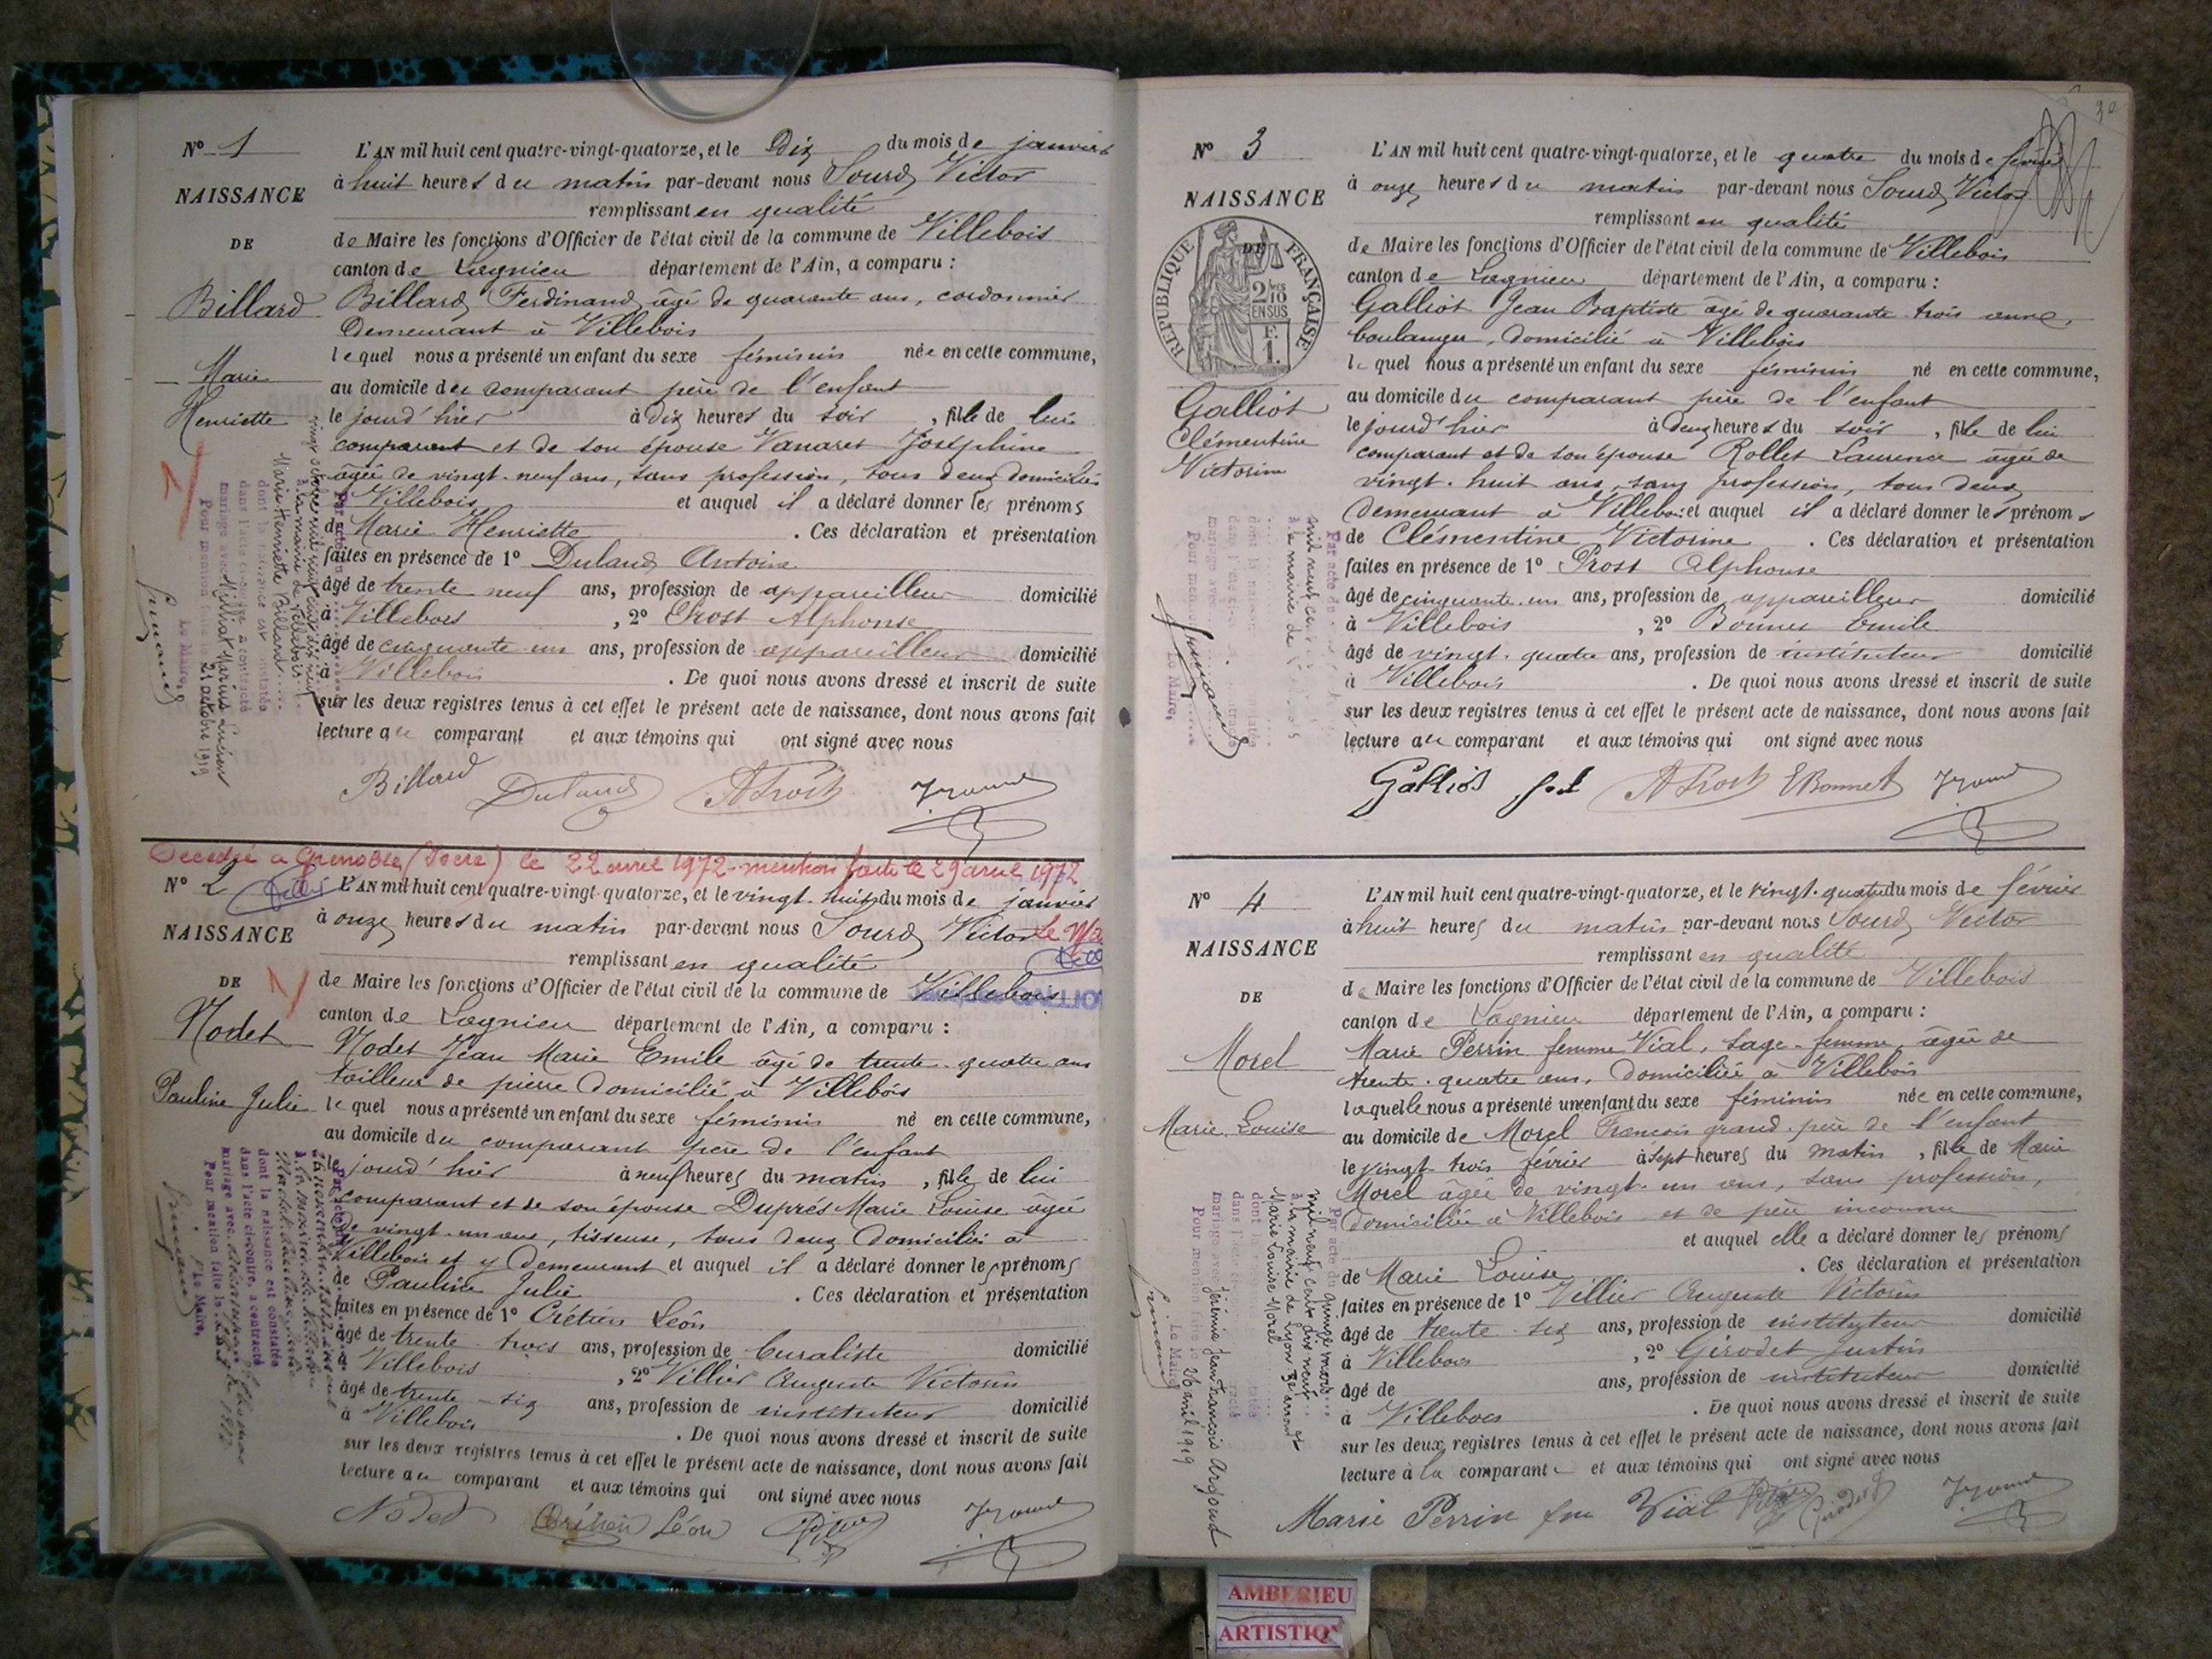 Nº 1
NAISSANCE
DE
Billard
Marie
Henriette
L'AN mil huit cent quatre-vingt-quatorze, et le Dix du mois de janvier
à huit heures du matin par-devant nous Sourd Victor
remplissant en qualité
de Maire les fonctions d'Officier de l'état civil de la commune de Villebois
canton de Lagnieu département de l'Ain, a comparu :
Billard Ferdinand âgé de quarante ans, cordonnier
Demeurant à Villebois
lequel nous a présenté un enfant du sexe féminin née en cette commune,
au domicile du comparant père de l'enfant
le jourd'hier à dix heures du soir, fille de lui
comparant et de son épouse Vanaret Joséphine
âgée de vingt-neuf ans, sans profession, tous deux domiciliés
Villebois et auquel il a déclaré donner les prénoms
de Marie Henriette. Ces déclaration et présentation
faites en présence de 1º Duland Antoine
âgé de trente neuf ans, profession de appareilleur domicilié
à Villebois, 2º Prost Alphonse
âgé de cinquante un ans, profession de appareilleur domicilié
à Villebois. De quoi nous avons dressé et inscrit de suite
sur les deux registres tenus à cet effet le présent acte de naissance, dont nous avons fait
lecture au comparant et aux témoins qui ont signé avec nous
Billard Duland AProst
Par acte du
vingt octobre mil neuf cent dix neuf
à la mairie de Villebois
Marie Henriette Billard
dont la naissance est constatée
dans l'acte ci-contre a contracté
mariage avec Milliat Marius Lucien
Pour mention faite le 21 octobre 1919
Le Maire,
Décédée à Grenoble (Isère) le 22 avril 1972 - mention faite le 29 avril 1972
Nº 2
NAISSANCE
DE
Nodet
Pauline Julie
L'AN mil huit cent quatre-vingt-quatorze, et le vingt-huit du mois de janvier
à onze heures du matin par-devant nous Sourd Victor
remplissant en qualité
de Maire les fonctions d'Officier de l'état civil de la commune de Villebois
canton de Lagnieu département de l'Ain, a comparu :
Nodet Jean Marie Emile âgé de trente-quatre ans
tailleur de pierre Domicilié à Villebois
lequel nous a présenté un enfant du sexe féminin né en cette commune,
au domicile du comparant père de l'enfant
le jourd'hier à neuf heures du matin, fille de lui
comparant et de son épouse Duprés Marie Louise âgée
de vingt un ans, tisseuse, tous deux Domiciliés à
Villebois et y demeurant et auquel il a déclaré donner les prénoms
de Pauline Julie. Ces déclaration et présentation
faites en présence de 1º Crétien Léon
âgé de trente trois ans, profession de buraliste domicilié
à Villebois, 2º Villier Auguste Victorin
âgé de trente-six ans, profession de instituteur domicilié
à Villebois. De quoi nous avons dressé et inscrit de suite
sur les deux registres tenus à cet effet le présent acte de naissance, dont nous avons fait
lecture au comparant et aux témoins qui ont signé avec nous
Nodet Crétien Léon
Par acte du
dont la naissance est constatée
dans l'acte ci-contre, a contracté
mariage avec
Pour mention faite le
Le Maire,
30
Nº 3
NAISSANCE
DE
RÉPUBLIQUE FRANÇAISE
2/10
EN SUS
F.
1.
Galliot
Clémentine
Victorine
L'AN mil huit cent quatre-vingt-quatorze, et le quatre du mois de février
à onze heures du matin par-devant nous Sourd Victor
remplissant en qualité
de Maire les fonctions d'Officier de l'état civil de la commune de Villebois
canton de Lagnieu département de l'Ain, a comparu :
Galliot Jean Baptiste âgé de quarante trois ans,
boulanger, domicilié à Villebois
lequel nous a présenté un enfant du sexe féminin né en cette commune,
au domicile du comparant père de l'enfant
le jourd'hier à deux heures du soir, fille de lui
comparant et de son épouse Rollet Laurence âgée de
vingt-huit ans, sans profession, tous deux
Demeurant à Villebois et auquel il a déclaré donner les prénoms
de Clémentine Victorine. Ces déclaration et présentation
faites en présence de 1º Prost Alphonse
âgé de cinquante-un ans, profession de appareilleur domicilié
à Villebois, 2º Bonnet Emile
âgé de vingt-quatre ans, profession de instituteur domicilié
à Villebois. De quoi nous avons dressé et inscrit de suite
sur les deux registres tenus à cet effet le présent acte de naissance, dont nous avons fait
lecture au comparant et aux témoins qui ont signé avec nous
Galliot J.B AProst EBonnet
Par acte du
mil neuf cent
à la mairie de
dont la naissance
mariage avec
Pour mention
Le Maire,
Nº 4
NAISSANCE
DE
Morel
Marie Louise
L'AN mil huit cent quatre-vingt-quatorze, et le vingt-quatre du mois de février
à huit heures du matin par-devant nous Sourd Victor
remplissant en qualité
de Maire les fonctions d'Officier de l'état civil de la commune de Villebois
canton de Lagnieu département de l'Ain, a comparu :
Marie Perrin femme Vial, sage-femme, âgée de
trente-quatre ans, Domiciliée à Villebois
laquelle nous a présenté un enfant du sexe féminin née en cette commune,
au domicile de Morel François grand-père de l'enfant
le vingt trois février à sept heures du matin, fille de Marie
Morel âgée de vingt-un ans, sans profession,
domiciliée à Villebois et de père inconnu
et auquel elle a déclaré donner les prénoms
de Marie Louise. Ces déclaration et présentation
faites en présence de 1º Villier Auguste Victorin
âgé de trente-six ans, profession de instituteur domicilié
à Villebois, 2º Girodet Justin
âgé de ans, profession de instituteur domicilié
à Villebois. De quoi nous avons dressé et inscrit de suite
sur les deux registres tenus à cet effet le présent acte de naissance, dont nous avons fait
lecture à la comparante et aux témoins qui ont signé avec nous
Marie Perrin fme Vial Girodet
Par acte du quinze mars
mil neuf cent dix neuf
à la mairie de Lyon 3e arrondt
Marie Louise Morel
dont la
mariage avec Jérémie Jean François Argoud
Pour mention faite le 26 avril 1919
Le Maire,
AMBERIEU
ARTISTIQ